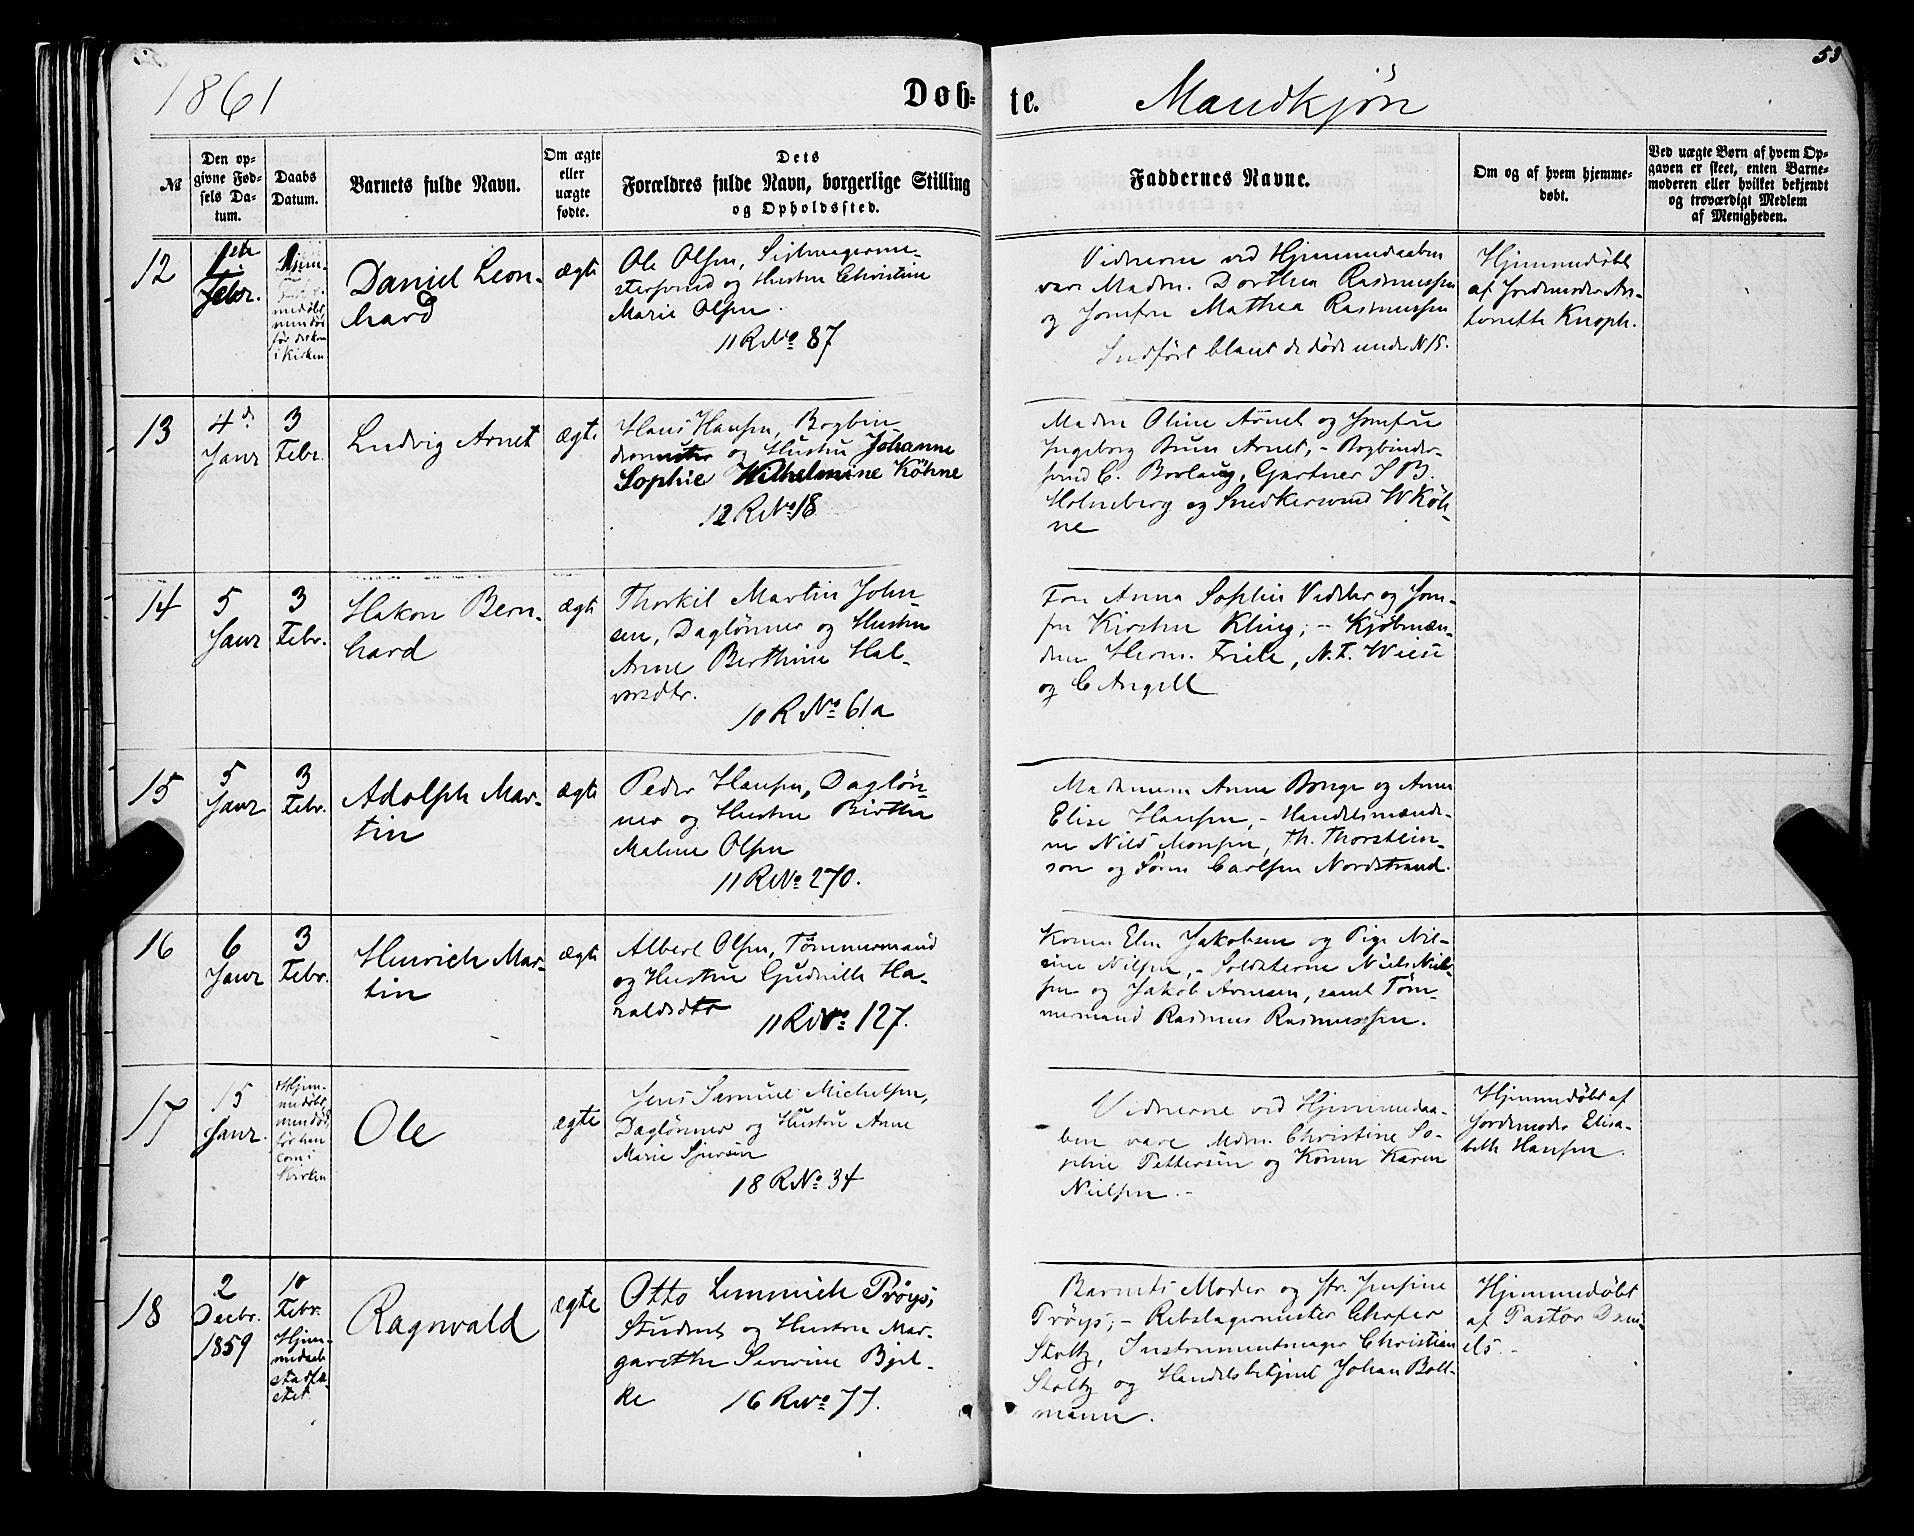 53
1861
Døb- te. Mandkjön
№
Den op-
givne Fød-
sels Da-
tum.
Daabs
Datum.
Barnets fulde Navn.
Om ægte
eller
uægte
fødte.
Dets
Forældres fulde Navn, borgerlige Stilling
og Opholdssted.
Faddernes Navne.
Om og af hvem hjemme-
døbt.
Ved uægte Børn af hvem Op-
gaven er skeet, enten Barne-
moderen eller hvilket bekjendt
og troværdigt Medlem
af Menigheden.
12
Febr.
Hjem-
medöbt,
men död
för det kom
i Kirken
Daniel Leon-
hard
ægte
Ole Olsen,
svend og Hustru Christine
Marie Olsen.
11 R No 87
Vidnerne ved Hjemmedaaben
vare Madm. Dorthea Rasmussen
og Jomfru Mathea Rasmussen
Indfört blant de döde under N 15.
Hjemmedöbt
af Jordemoder An-
tonette Knoph.
13
4de
Janr
3
Febr.
Ludvig Arnet
ægte
Hans Hansen, Bogbin-
dermester og Hustru Johanne
Sophie Wilhelmine Köhne
12 R No 18
Madm Oline Arnet og Jomfru
Ingeborg Bruun Arnet, - Bogbinder-
svend C. Borlaug, Gartner J B.
Holmeberg og Snedkersvend W Köh-
ne
14
5
Janr
3
Febr.
Hakon Bern-
hard
ægte
Thorkil Martin John-
sen, Daglönner og Hustru
Anne Berthine Hal-
vorsdtr.
10 R No 61a
Fru Anna Sophie Vedeler og Jom-
fru Kirsten Kling; - Kjöbmæn-
dene Herm. Friele, N. F. Wiese
og C Angell
15
5
Janr
3
Febr.
Adolph Mar-
tin
ægte
Peder Hansen, Daglön-
ner og Hustru Birthe
Malene Olsen
11 R No 270.
Madamerne Anne Borge og Anne
Elise Hansen, - Handelsmænde-
ne Nils Monsen, Th. Thorstein-
son og Sören Carlsen Nordstrand.
16
6
Janr
3
Febr.
Henrich Mar-
tin
ægte
Albert Olsen, Tömmermand
og Hustru Gudnille Ha-
raldsdtr
11 R No 127.
Konen Elen Jakobsen og Pige Nil-
sine Nilsen, - Soldaterne Niels Niel-
sen og Jakob Arnesen, samt Töm-
mermand Rasmus Rasmussen.
17
15
Janr.
Hjem-
medöbt,
men död
för den
kom i
Kirken
Ole
ægte
Jens Samuel Michelsen,
Daglönner og Hustru Anne
Marie Sjursen
18 R No 34
Vidnerne ved Hjemmedaa-
ben vare Mdm. Christine So-
phie Pettersen og Konen Karen
Nielsen. -
Hjemmedöbt af
Jordemoder Elisa-
beth Hansen.
18
2
Decbr.
1859
10
Febr.
Hjem-
medaab
stadfæ-
stet.
Ragnvald
ægte
Otto Lemmich Pröys,
Student og Hustru Mar-
garethe Severine Bjel-
ke
16 R No 77.
Barnets Moder og Fr. Jensine
Pröys, - Rebslagermester Christopher
Stoltz, Instrumentmager Christian
Stoltz og Handelsbetjent Johan Bolt-
mann.
Hjemmedöbt
af Pastor Dani-
els. -